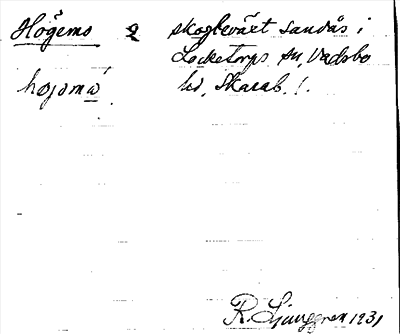 Högemo 2 skogbeväxt sandås i
Locketorps sn, Vadsbo
hd, Skarab. l.
hojomω
R. Ljunggren 1931